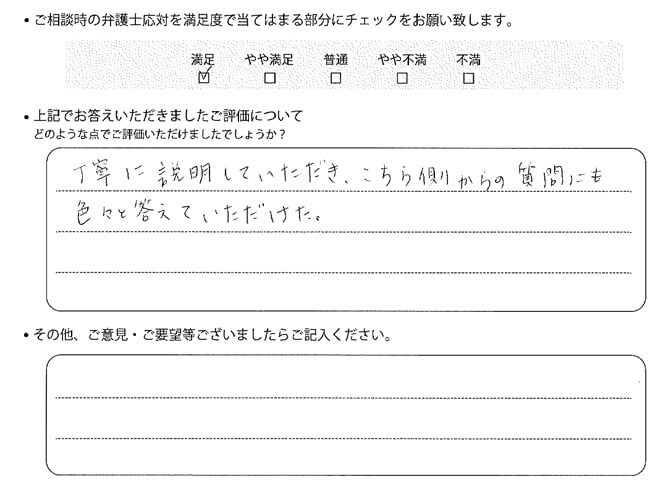 • ご相談時の弁護士応対を満足度で当てはまる部分にチェックをお願い致します。
満足 やや満足 普通 やや不満 不満
☑ □ □ □ □
• 上記でお答えいただきましたご評価について
どのような点でご評価いただけましたでしょうか？
丁寧に説明していただき、こちら側からの質問にも
色々と答えていただけた。
• その他、ご意見・ご要望等ございましたらご記入ください。